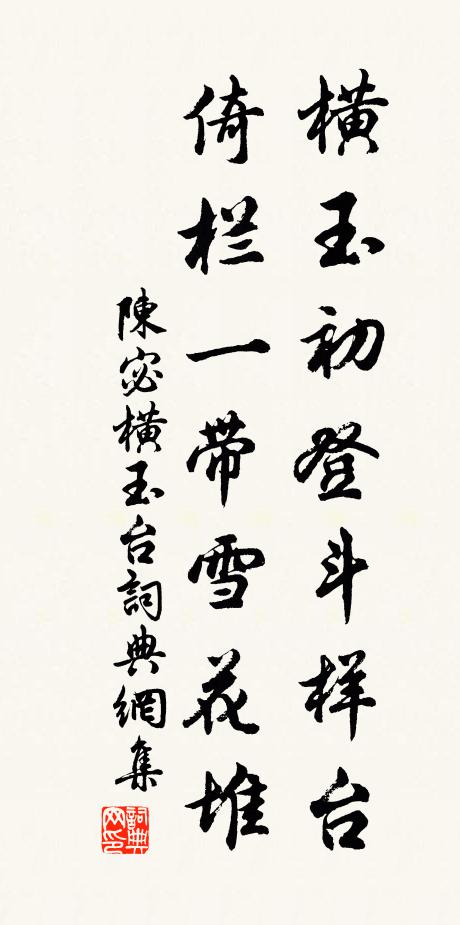 横玉初登斗样台
倚栏一带雪花堆
陳宓横玉台詞典網集
詞典网印